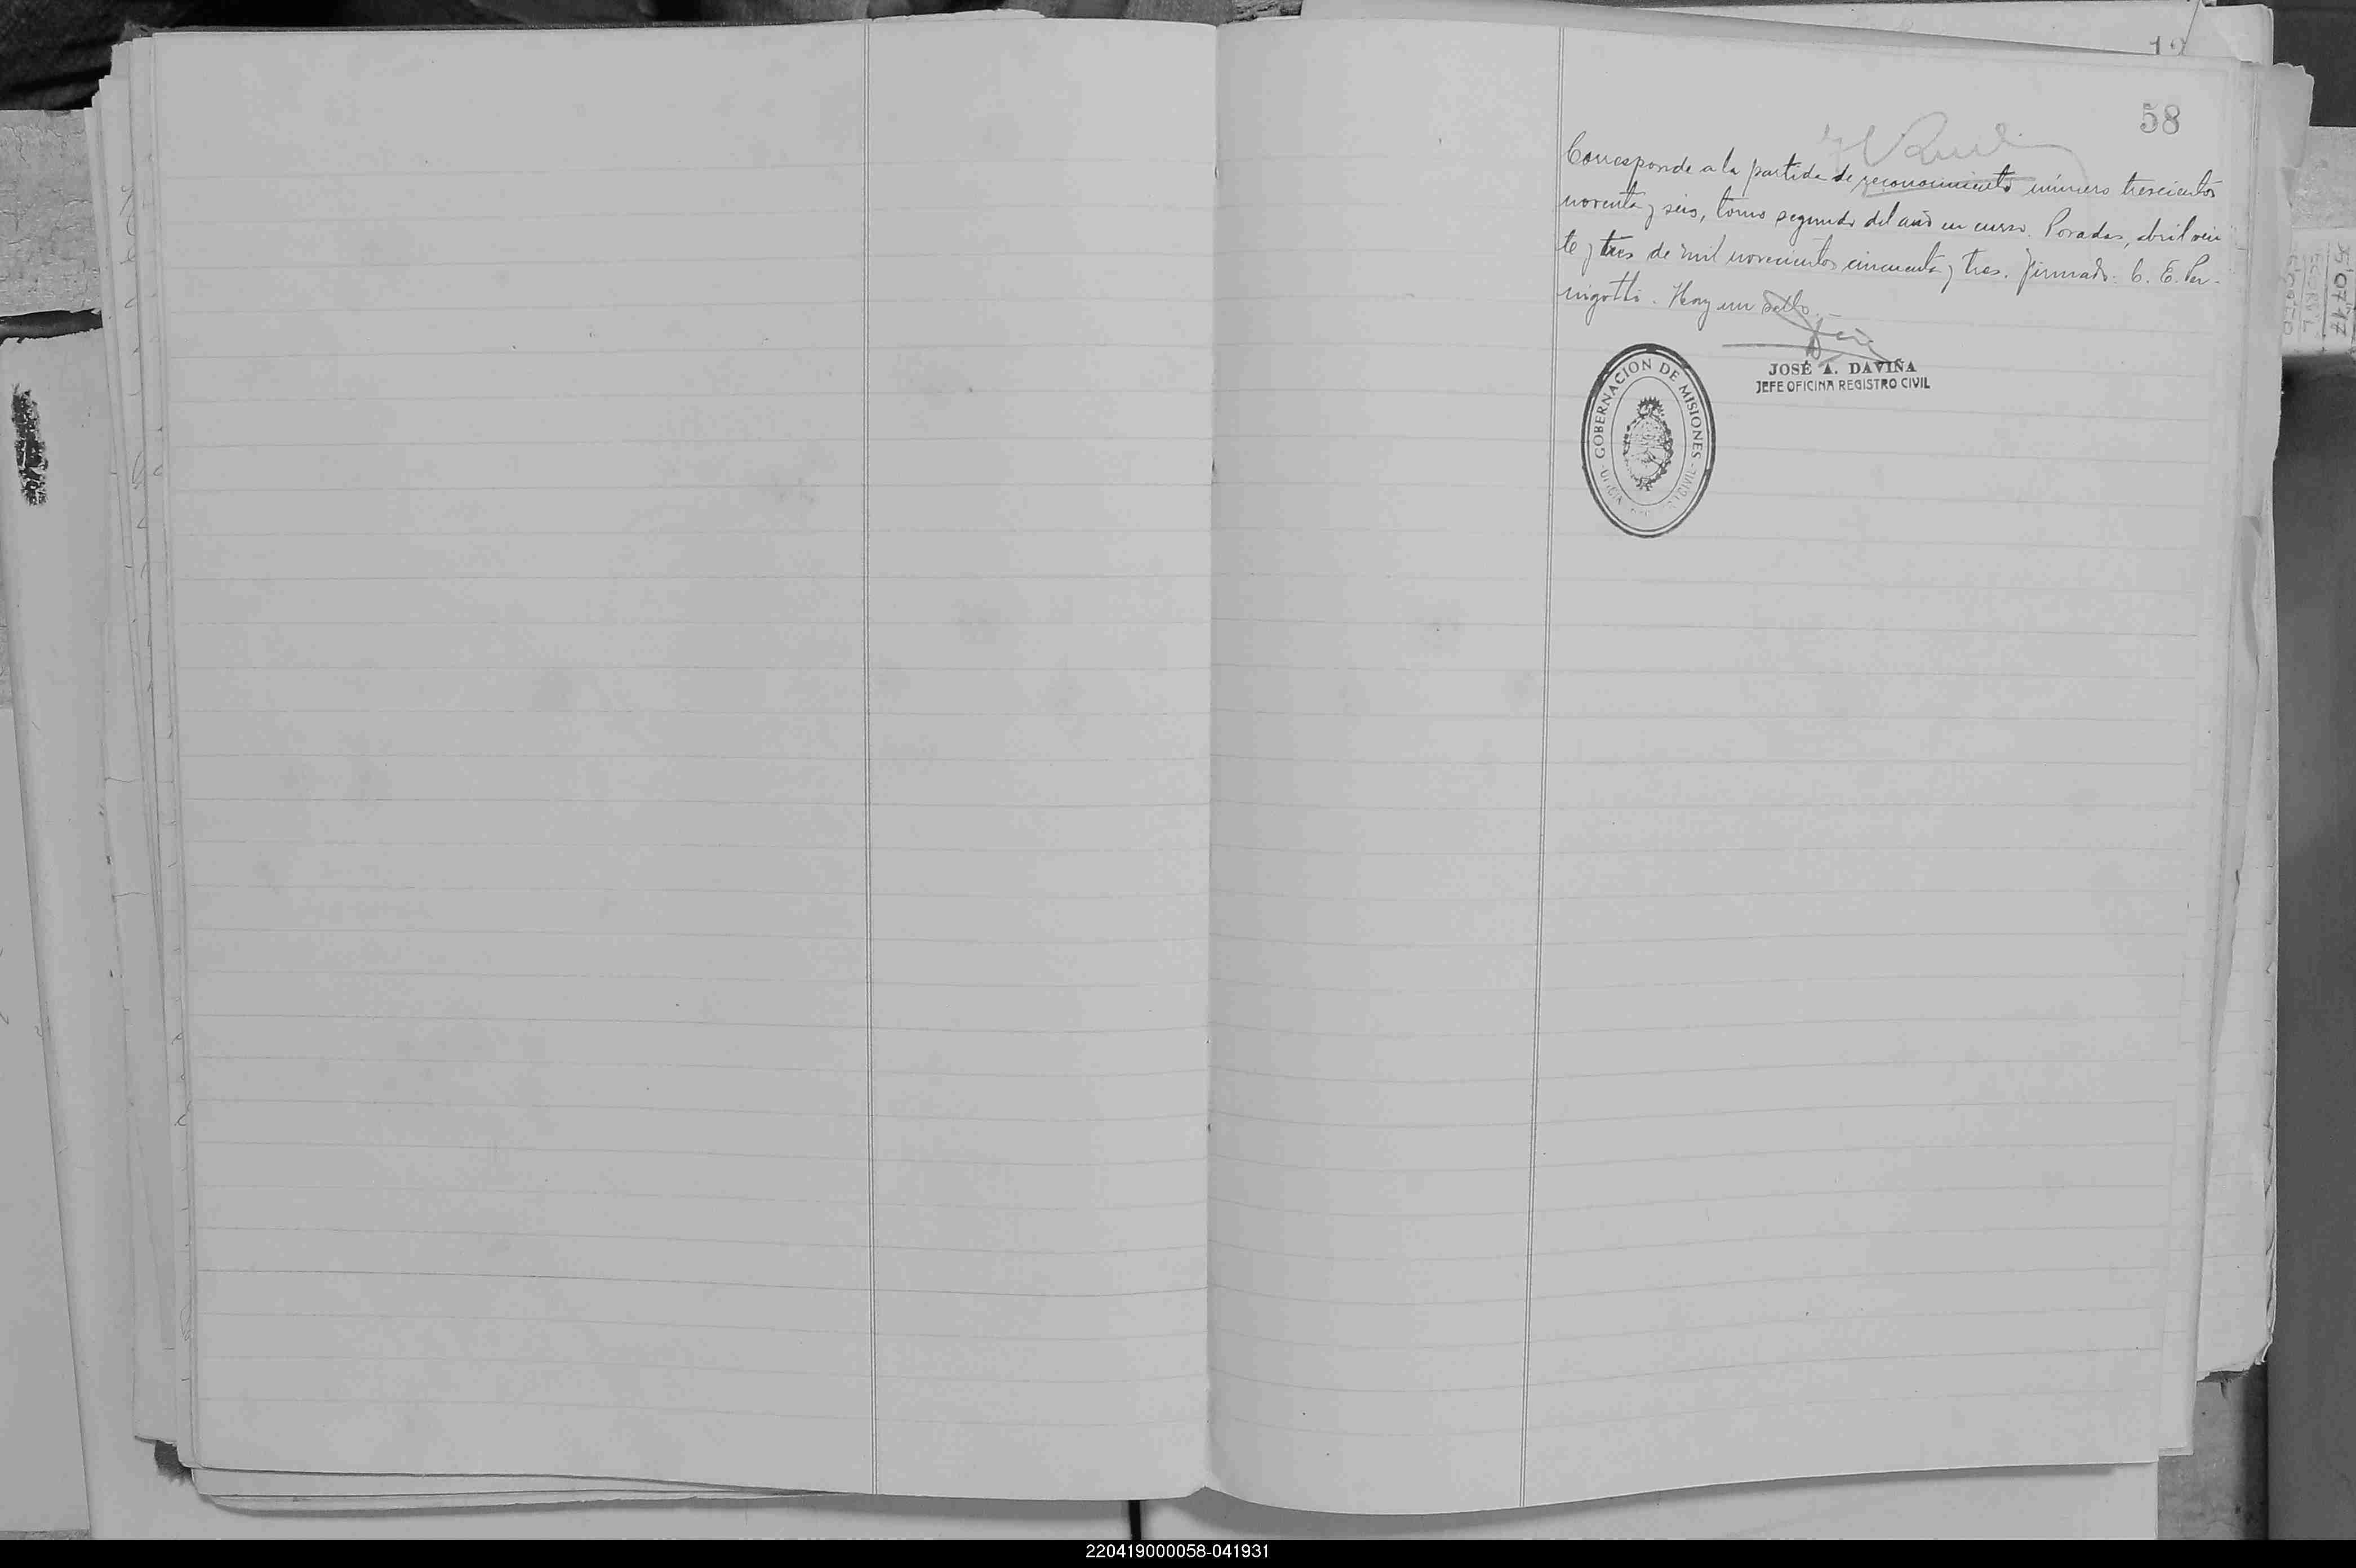 58
Corresponde a la partida de reconocimiento número trescientos
noventa y seis, tomo segundo del año en curso. Posadas, abril vein
te y tres de mil novecientos cincuenta y tres. Firmado: C. E. Per-
nigotti. Hay un sello.-
JOSÉ A. DAVIÑA
JEFE OFICINA REGISTRO CIVIL
GOBERNACION DE MISIONES
220419000058-041931